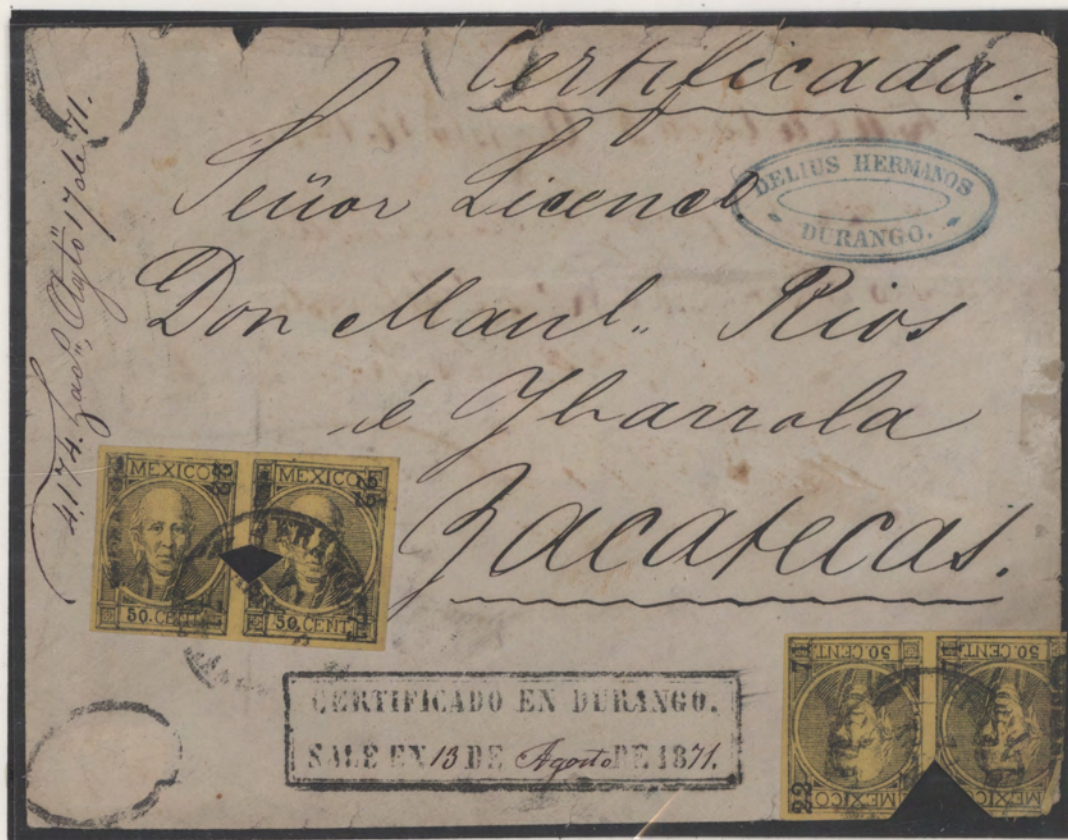 Certificada.
Señor Licencd
DELIUS HERMANOS
DURANGO.
Don Manl.. Rios
é Ybarrola
Zacatecas.
4,174. Zacs, Agto 17 de 71.
MEXICO MEXICO
50.CENT 50.CENT
CERTIFICADO EN DURANGO.
SALE EN 13 DE Agosto DE 1871.
50.CENT. 50.CENT.
22 71
MEXICO MEXICO